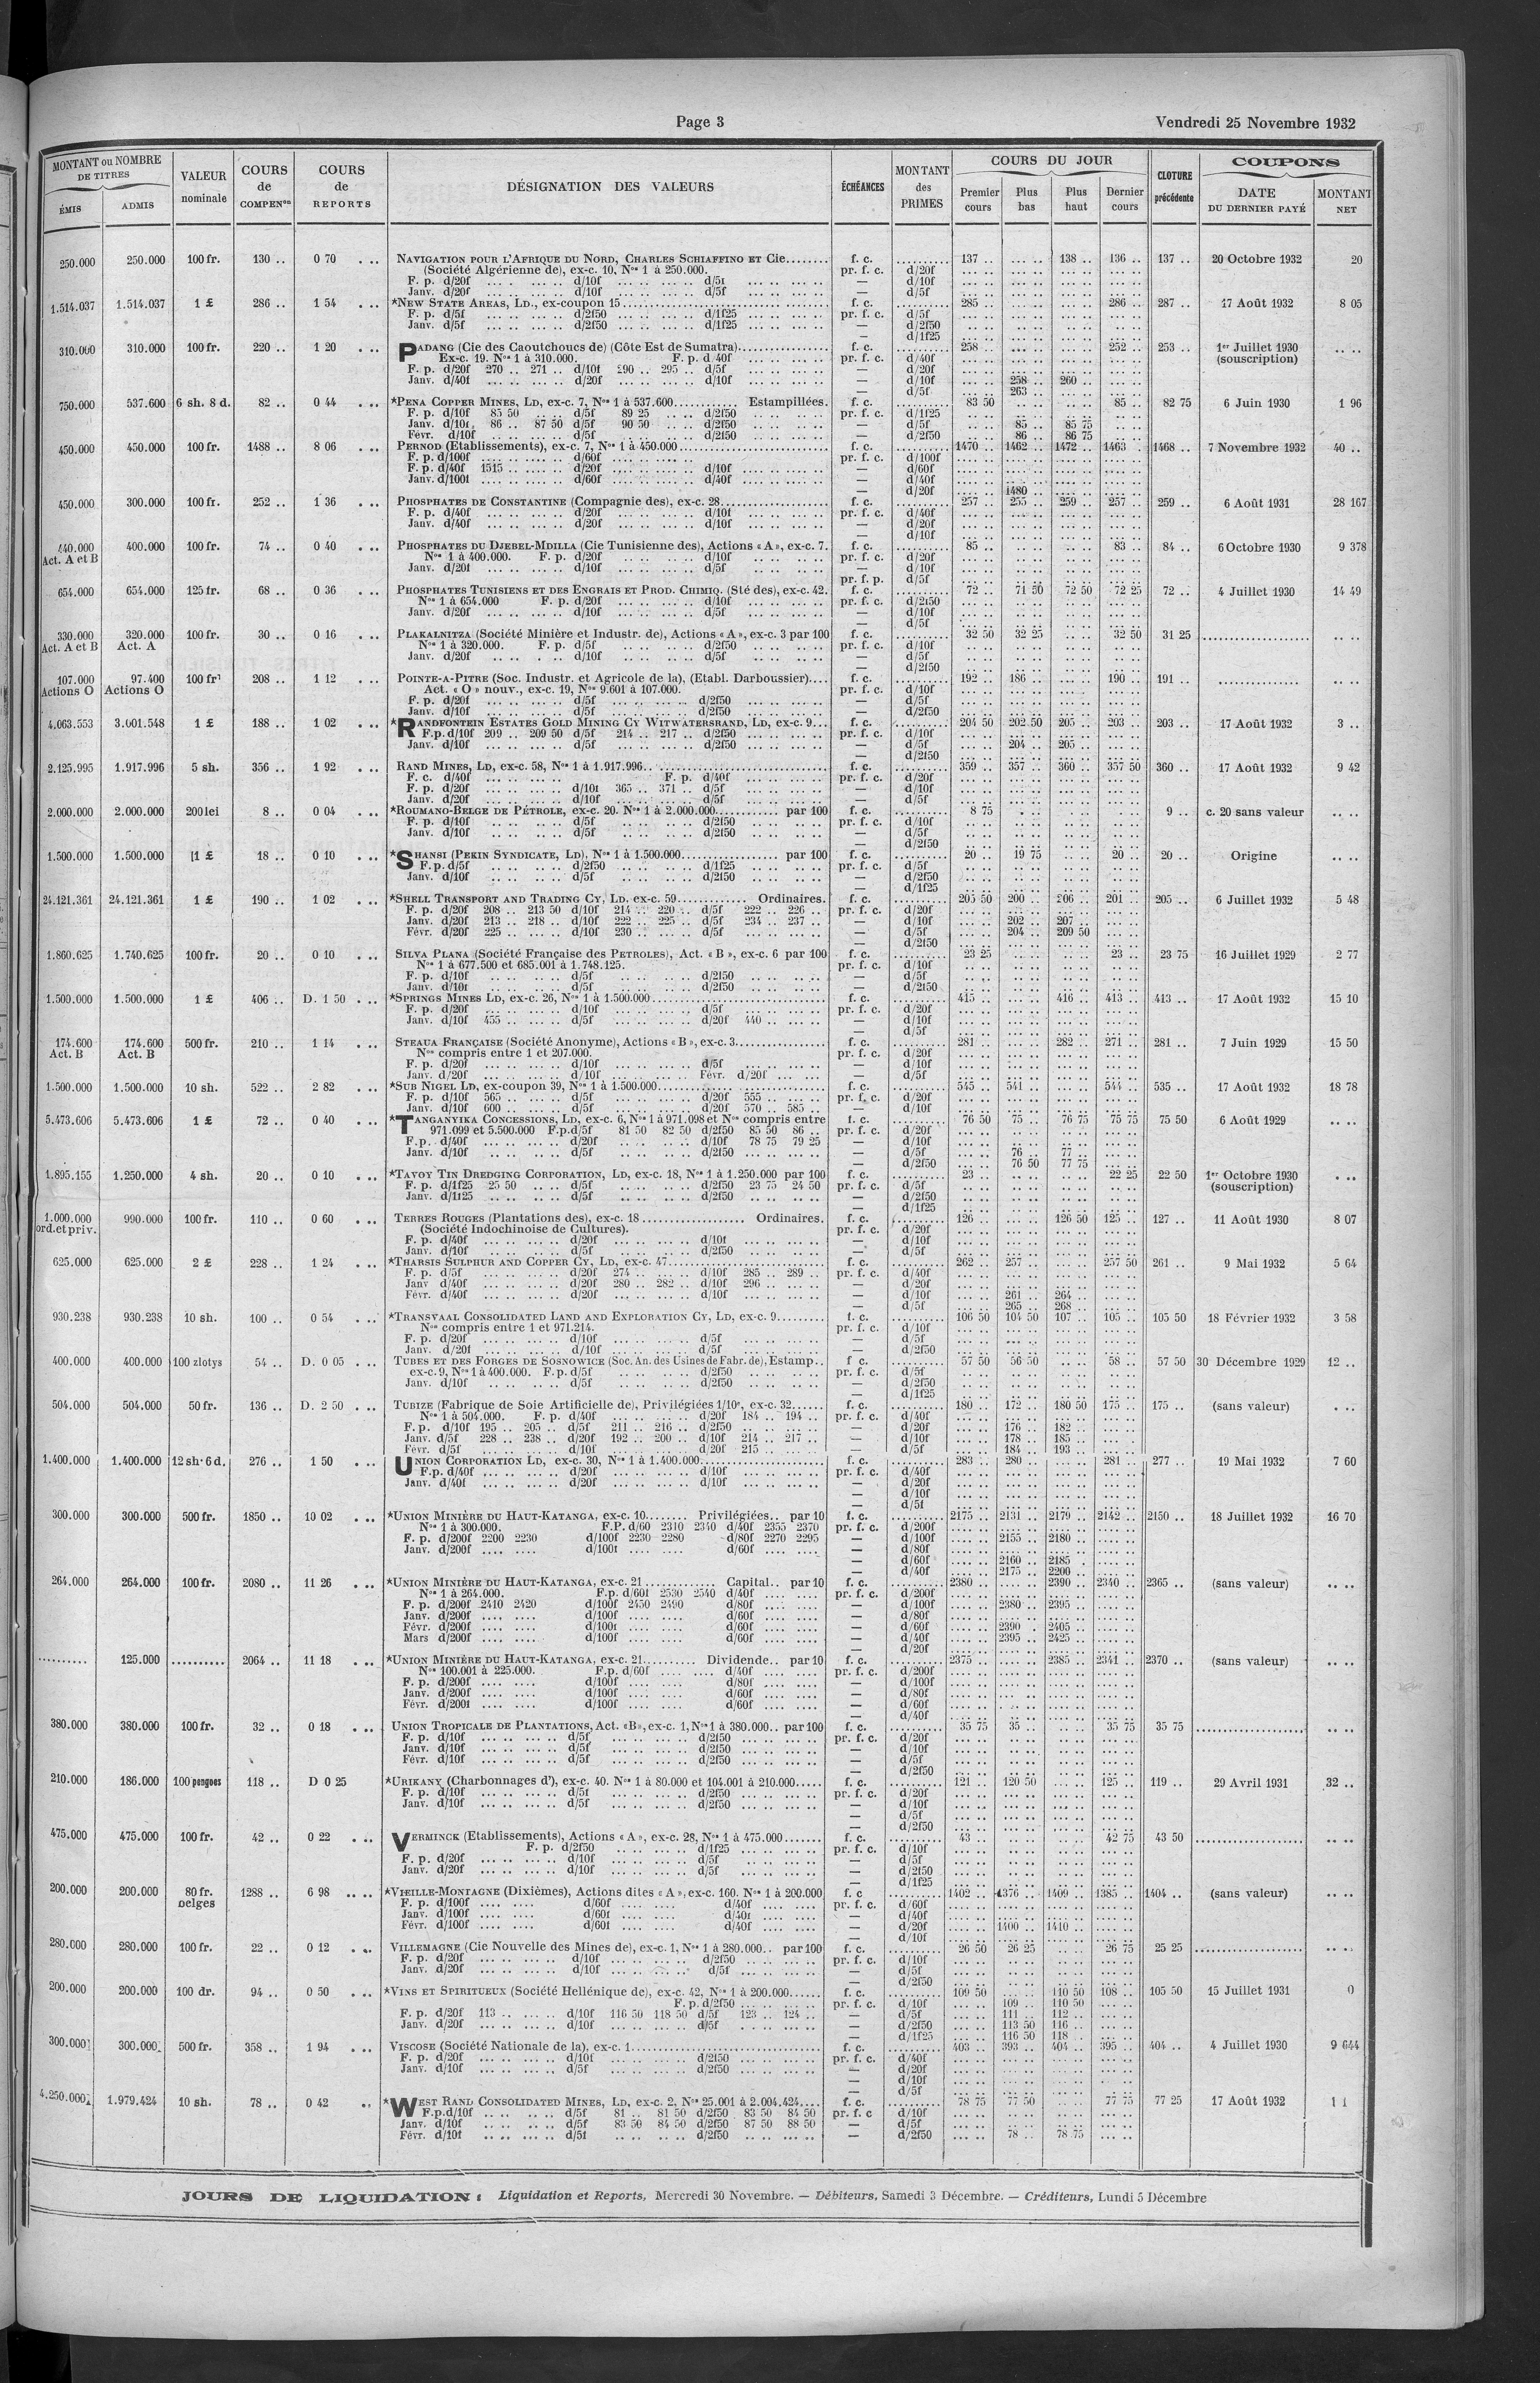 Page 3
Vendredi 25 Novembre 1932
MONTANT ou NOMBRE DE TITRES
ÉMIS ADMIS
VALEUR nominale
COURS de COMPENon
COURS de REPORTS
DÉSIGNATION DES VALEURS
ÉCHÉANCES
MONTANT des PRIMES
COURS DU JOUR
Premier cours Plus bas Plus haut Dernier cours
CLOTURE précédente
COUPONS
DATE DU DERNIER PAYÉ MONTANT NET
250.000 250.000 100 fr. 130 .. 0 70 NAVIGATION POUR L'AFRIQUE DU NORD, CHARLES SCHIAFFINO ET Cie f. c. 137 .. 138 .. 136 .. 137 .. 20 Octobre 1932 20
(Société Algérienne de), ex-c. 10, Nos 1 à 250.000. pr. f. c. d/20f
F. p. d/20f d/10f d/5f — d/10f
Janv. d/20f d/10f d/5f — d/5f
1.514.037 1.514.037 1 £ 286 .. 1 54 *NEW STATE AREAS, LD., ex-coupon 15 f. c. 285 .. 286 .. 287 .. 17 Août 1932 8 05
F. p. d/5f d/2f50 d/1f25 pr. f. c. d/5f
Janv. d/5f d/2f50 d/1f25 — d/2f50
— d/1f25
310.000 310.000 100 fr. 220 .. 1 20 PADANG (Cie des Caoutchoucs de) (Côte Est de Sumatra) f. c. 258 .. 252 .. 253 .. 1er Juillet 1930 (souscription)
Ex-c. 19. Nos 1 à 310.000. F. p. d/40f pr. f. c. d/40f
F. p. d/20f 270 .. 271 .. d/10f 290 .. 295 .. d/5f — d/20f
Janv. d/40f d/20f d/10f — d/10f 258 .. 260 ..
— d/5f 263 ..
750.000 537.600 6 sh. 8 d. 82 .. 0 44 *PENA COPPER MINES, LD, ex-c. 7, Nos 1 à 537.600 Estampillées. f. c. 83 50 85 .. 82 75 6 Juin 1930 1 96
F. p. d/10f 85 50 d/5f 89 25 d/2f50 pr. f. c. d/1f25
Janv. d/10f 86 .. 87 50 d/5f 90 50 d/2f50 — d/5f 85 .. 85 75
Févr. d/10f d/5f d/2f50 — d/2f50 86 .. 86 75
450.000 450.000 100 fr. 1488 .. 8 06 PERNOD (Etablissements), ex-c. 7, Nos 1 à 450.000 f. c. 1470 .. 1462 .. 1472 .. 1463 .. 1468 .. 7 Novembre 1932 40 ..
F. p. d/100f d/60f pr. f. c. d/100f
F. p. d/40f 1515 d/20f d/10f — d/60f
Janv. d/100f d/60f d/40f — d/40f
— d/20f 1480 ..
450.000 300.000 100 fr. 252 .. 1 36 PHOSPHATES DE CONSTANTINE (Compagnie des), ex-c. 28 f. c. 257 .. 255 .. 259 .. 257 .. 259 .. 6 Août 1931 28 167
F. p. d/40f d/20f d/10f pr. f. c. d/40f
Janv. d/40f d/20f d/10f — d/20f
— d/10f
440.000 Act. A et B 400.000 100 fr. 74 .. 0 40 PHOSPHATES DU DJEBEL-MDILLA (Cie Tunisienne des), Actions « A », ex-c. 7. f. c. 85 .. 83 .. 84 .. 6 Octobre 1930 9 378
Nos 1 à 400.000. F. p. d/20f d/10f pr. f. c. d/20f
Janv. d/20f d/10f d/5f — d/10f
pr. f. p. d/5f
654.000 654.000 125 fr. 68 .. 0 36 PHOSPHATES TUNISIENS ET DES ENGRAIS ET PROD. CHIMIQ. (Sté des), ex-c. 42. f. c. 72 .. 71 50 72 50 72 25 72 .. 4 Juillet 1930 14 49
Nos 1 à 654.000 F. p. d/20f d/10f pr. f. c. d/2f50
Janv. d/20f d/10f d/5f — d/10f
— d/5f
330.000 Act. A et B 320.000 Act. A 100 fr. 30 .. 0 16 PLAKALNITZA (Société Minière et Industr. de), Actions « A », ex-c. 3 par 100 f. c. 32 50 32 25 32 50 31 25
Nos 1 à 320.000. F. p. d/5f d/2f50 pr. f. c. d/10f
Janv. d/20f d/10f d/5f — d/5f
— d/2f50
107.000 Actions O 97.400 Actions O 100 fr. 208 .. 1 12 POINTE-A-PITRE (Soc. Industr. et Agricole de la), (Etabl. Darboussier) f. c. 192 .. 186 .. 190 .. 191 ..
Act. « O » nouv., ex-c. 19, Nos 9.601 à 107.000. pr. f. c. d/10f
F. p. d/20f d/5f d/2f50 — d/5f
Janv. d/10f d/5f d/2f50 — d/2f50
4.063.553 3.001.548 1 £ 188 .. 1 02 *RANDFONTEIN ESTATES GOLD MINING CY WITWATERSRAND, LD, ex-c. 9 f. c. 204 50 202 50 205 .. 203 .. 203 .. 17 Août 1932 3 ..
F.p. d/10f 209 .. 209 50 d/5f 214 .. 217 .. d/2f50 pr. f. c. d/10f
Janv. d/10f d/5f d/2f50 — d/5f 204 .. 205 ..
— d/2f50
2.125.995 1.917.996 5 sh. 356 .. 1 92 RAND MINES, LD, ex-c. 58, Nos 1 à 1.917.996 f. c. 359 .. 357 .. 360 .. 357 50 360 .. 17 Août 1932 9 42
F. c. d/40f F. p. d/40f pr. f. c. d/20f
F. p. d/20f d/10f 365 .. 371 .. d/5f — d/10f
Janv. d/20f d/10f d/5f — d/5f
2.000.000 2.000.000 200 lei 8 .. 0 04 *ROUMANO-BELGE DE PÉTROLE, ex-c. 20. Nos 1 à 2.000.000 par 100 f. c. 8 75 9 .. c. 20 sans valeur
F. p. d/10f d/5f d/2f50 pr. f. c. d/10f
Janv. d/10f d/5f d/2f50 — d/5f
— d/2f50
1.500.000 1.500.000 1 £ 18 .. 0 10 *SHANSI (PEKIN SYNDICATE, LD), Nos 1 à 1.500.000 par 100 f. c. 20 .. 19 75 20 .. 20 .. Origine
F. p. d/5f d/2f50 d/1f25 pr. f. c. d/5f
Janv. d/10f d/5f d/2f50 — d/2f50
— d/1f25
24.121.361 24.121.361 1 £ 190 .. 1 02 *SHELL TRANSPORT AND TRADING CY, LD. ex-c. 59 Ordinaires. f. c. 205 50 200 .. 206 .. 201 .. 205 .. 6 Juillet 1932 5 48
F. p. d/20f 208 .. 213 50 d/10f 214 .. 220 .. d/5f 222 .. 226 .. pr. f. c. d/20f
Janv. d/20f 213 .. 218 .. d/10f 222 .. 225 .. d/5f 234 .. 237 .. — d/10f 202 .. 207 ..
Févr. d/20f 225 .. d/10f 230 .. d/5f — d/5f 204 .. 209 50
— d/2f50
1.860.625 1.740.625 100 fr. 20 .. 0 10 SILVA PLANA (Société Française des PETROLES), Act. « B », ex-c. 6 par 100 f. c. 23 25 23 .. 23 75 16 Juillet 1929 2 77
Nos 1 à 677.500 et 685.001 à 1.748.125. pr. f. c. d/10f
F. p. d/10f d/5f d/2f50 — d/5f
Janv. d/10f d/5f d/2f50 — d/2f50
1.500.000 1.500.000 1 £ 406 .. D. 1 50 *SPRINGS MINES LD, ex-c. 26, Nos 1 à 1.500.000 f. c. 415 .. 416 .. 413 .. 413 .. 17 Août 1932 15 10
F. p. d/20f d/10f d/5f pr. f. c. d/20f
Janv. d/10f 455 .. d/5f d/20f 440 .. — d/10f
— d/5f
174.600 Act. B 174.600 Act. B 500 fr. 210 .. 1 14 STEAUA FRANÇAISE (Société Anonyme), Actions « B », ex-c. 3 f. c. 281 .. 282 .. 271 .. 281 .. 7 Juin 1929 15 50
Nos compris entre 1 et 207.000. pr. f. c. d/20f
F. p. d/20f d/10f d/5f — d/10f
Janv. d/20f d/10f Févr. d/20f — d/5f
1.500.000 1.500.000 10 sh. 522 .. 2 82 *SUB NIGEL LD, ex-coupon 39, Nos 1 à 1.500.000 f. c. 545 .. 541 .. 544 .. 535 .. 17 Août 1932 18 78
F. p. d/10f 565 .. d/5f d/20f 555 .. pr. f. c. d/20f
Janv. d/10f 600 .. d/5f d/20f 570 .. 585 .. — d/10f
5.473.606 5.473.606 1 £ 72 .. 0 40 *TANGANYIKA CONCESSIONS, LD, ex-c. 6, Nos 1 à 971.098 et Nos compris entre f. c. 76 50 75 .. 76 75 75 75 75 50 6 Août 1929
971.099 et 5.500.000 F.p. d/5f 81 50 82 50 d/2f50 85 50 86 .. pr. f. c. d/20f
F.p. d/40f d/20f d/10f 78 75 79 25 — d/10f
Janv. d/10f d/5f d/2f50 — d/5f 76 .. 77 ..
— d/2f50 76 50 77 75
1.895.155 1.250.000 4 sh. 20 .. 0 10 *TAVOY TIN DREDGING CORPORATION, LD, ex-c. 18, Nos 1 à 1.250.000 par 100 f. c. 23 .. 22 25 22 50 1er Octobre 1930 (souscription)
F. p. d/1f25 25 50 d/5f d/2f50 23 75 24 50 pr. f. c. d/5f
Janv. d/1f25 d/5f d/2f50 — d/2f50
— d/1f25
1.000.000 ord. et priv. 990.000 100 fr. 110 .. 0 60 TERRES ROUGES (Plantations des), ex-c. 18 Ordinaires. f. c. 126 .. 126 50 125 .. 127 .. 11 Août 1930 8 07
(Société Indochinoise de Cultures). pr. f. c. d/20f
F. p. d/40f d/20f d/10f — d/10f
Janv. d/10f d/5f d/2f50 — d/5f
625.000 625.000 2 £ 228 .. 1 24 *THARSIS SULPHUR AND COPPER CY, LD, ex-c. 47 f. c. 262 .. 257 .. 257 50 261 .. 9 Mai 1932 5 64
F. p. d/5f d/20f 274 .. d/10f 285 .. 289 .. pr. f. c. d/40f
Janv d/40f d/20f 280 .. 282 .. d/10f 296 .. — d/20f
Févr. d/40f d/20f d/10f — d/10f 261 .. 264 ..
— d/5f 265 .. 268 ..
930.238 930.238 10 sh. 100 .. 0 54 *TRANSVAAL CONSOLIDATED LAND AND EXPLORATION CY, LD, ex-c. 9 f. c. 106 50 104 50 107 .. 105 .. 105 50 18 Février 1932 3 58
Nos compris entre 1 et 971.214. pr. f. c. d/10f
F. p. d/20f d/10f d/5f — d/5f
Janv. d/20f d/10f d/5f — d/2f50
400.000 400.000 100 zlotys 54 .. D. 0 05 TUBES ET DES FORGES DE SOSNOWICE (Soc. An. des Usines de Fabr. de), Estamp.. f c. 57 50 56 50 58 .. 57 50 30 Décembre 1929 12 ..
ex-c. 9, Nos 1 à 400.000. F. p. d/5f d/2f50 pr. f. c. d/5f
Janv. d/10f d/5f d/2f50 — d/2f50
— d/1f25
504.000 504.000 50 fr. 136 .. D. 2 50 TUBIZE (Fabrique de Soie Artificielle de), Privilégiées 1/10e, ex-c. 32 f. c. 180 .. 172 .. 180 50 175 .. 175 .. (sans valeur)
Nos 1 à 504.000. F. p. d/40f d/20f 184 .. 194 .. pr. f. c. d/40f
F. p. d/10f 195 .. 205 .. d/5f 211 .. 216 .. d/2f50 — d/20f 176 .. 182 ..
Janv. d/5f 228 .. 238 .. d/20f 192 .. 200 .. d/10f 214 .. 217 .. — d/10f 178 .. 185 ..
Févr. d/5f d/10f d/20f 215 .. — d/5f 184 .. 193 ..
1.400.000 1.400.000 12 sh. 6 d. 276 .. 1 50 UNION CORPORATION LD, ex-c. 30, Nos 1 à 1.400.000 f. c. 283 .. 280 .. 281 .. 277 .. 19 Mai 1932 7 60
F.p. d/40f d/20f d/10f pr. f. c. d/40f
Janv. d/40f d/20f d/10f — d/20f
— d/10f
— d/5f
300.000 300.000 500 fr. 1850 .. 10 02 *UNION MINIÈRE DU HAUT-KATANGA, ex-c. 10 Privilégiées.. par 10 f. c. 2175 .. 2131 .. 2179 .. 2142 .. 2150 .. 18 Juillet 1932 16 70
Nos 1 à 300.000. F.P. d/60 2310 2340 d/40f 2355 2370 pr. f. c. d/200f
F. p. d/200f 2200 2230 d/100f 2230 2280 d/80f 2270 2295 — d/100f 2155 .. 2180 ..
Janv. d/200f d/100f d/60f — d/80f
— d/60f 2160 .. 2185 .
— d/40f 2175 .. 2200 ..
264.000 264.000 100 fr. 2080 .. 11 26 *UNION MINIÈRE DU HAUT-KATANGA, ex-c. 21 Capital.. par 10 f. c. 2380 .. 2390 .. 2340 .. 2365 .. (sans valeur)
Nos 1 à 264.000. F.p. d/60f 2530 2540 d/40f pr. f. c. d/200f
F. p. d/200f 2410 2420 d/100f 2450 2490 d/80f — d/100f 2380 .. 2395 ..
Janv. d/200f d/100f d/60f — d/80f
Févr. d/200f d/100f d/60f — d/60f 2390 . 2405 ..
Mars d/200f d/100f d/60f — d/40f 2395 .. 2425 ..
— d/20f
125.000 2064 .. 11 18 *UNION MINIÈRE DU HAUT-KATANGA, ex-c. 21 Dividende.. par 10 f. c. 2375 .. 2385 .. 2341 .. 2370 .. (sans valeur)
Nos 100.001 à 225.000. F.p. d/60f d/40f pr. f. c. d/200f
F. p. d/200f d/100f d/80f — d/100f
Janv. d/200f d/100f d/60f — d/80f
Févr. d/200f d/100f d/60f — d/60f
— d/40f
380.000 380.000 100 fr. 32 .. 0 18 UNION TROPICALE DE PLANTATIONS, Act. «B», ex-c. 1, Nos 1 à 380.000.. par 100 f. c. 35 75 35 .. 35 75 35 75
F. p. d/10f d/5f d/2f50 pr. f. c. d/20f
Janv. d/10f d/5f d/2f50 — d/10f
Févr. d/10f d/5f d/2f50 — d/5f
— d/2f50
210.000 186.000 100 pengoes 118 .. D 0 25 *URIKANY (Charbonnages d'), ex-c. 40. Nos 1 à 80.000 et 104.001 à 210.000 f. c. 121 .. 120 50 125 .. 119 .. 29 Avril 1931 32 ..
F. p. d/10f d/5f d/2f50 pr. f. c. d/20f
Janv. d/10f d/5f d/2f50 — d/10f
— d/5f
— d/2f50
475.000 475.000 100 fr. 42 .. 0 22 VERMINCK (Etablissements), Actions « A », ex-c. 28, Nos 1 à 475.000 f. c. 43 .. 42 75 43 50
F. p. d/2f50 d/1f25 pr. f. c. d/10f
F. p. d/20f d/10f d/5f — d/5f
Janv. d/20f d/10f d/5f — d/2f50
— d/1f25
200.000 200.000 80 fr. belges 1288 .. 6 98 *VIEILLE-MONTAGNE (Dixièmes), Actions dites « A », ex-c. 160. Nos 1 à 200.000 f. c 1402 .. 1376 .. 1409 .. 1385 .. 1404 .. (sans valeur)
F. p. d/100f d/60f d/40f pr. f. c. d/60f
Janv. d/100f d/60f d/40f — d/40f
Févr. d/100f d/60f d/40f — d/20f 1400 .. 1410 ..
— d/10f
280.000 280.000 100 fr. 22 .. 0 12 VILLEMAGNE (Cie Nouvelle des Mines de), ex-c. 1, Nos 1 à 280.000.. par 100 f. c. 26 50 26 25 26 75 25 25
F. p. d/20f d/10f d/2f50 pr. f. c. d/10f
Janv. d/20f d/10f d/5f — d/5f
— d/2f50
200.000 200.000 100 dr. 94 .. 0 50 *VINS ET SPIRITUEUX (Société Hellénique de), ex-c. 42, Nos 1 à 200.000 f. c. 109 50 110 50 108 .. 105 50 15 Juillet 1931 0
F. p. d/2f50 pr. f. c. d/10f 109 .. 110 50
F. p. d/20f 113 .. d/10f 116 50 118 50 d/5f 123 .. 124 .. — d/5f 111 .. 112 ..
Janv. d/20f d/10f d/5f — d/2f50 113 50 116 ..
— d/1f25 116 50 118 ..
300.000 300.000 500 fr. 358 .. 1 94 VISCOSE (Société Nationale de la), ex-c. 1 f. c. 403 .. 393 .. 404 .. 395 .. 404 .. 4 Juillet 1930 9 644
F. p. d/20f d/10f d/2f50 pr. f. c. d/40f
Janv. d/10f d/5f d/2f50 — d/20f
— d/10f
— d/5f
4.250.000 1.979.424 10 sh. 78 .. 0 42 *WEST RAND CONSOLIDATED MINES, LD, ex-c. 2, Nos 25.001 à 2.004.424 f. c. 78 75 77 50 77 75 77 25 17 Août 1932
F.p. d/10f d/5f 81 .. 81 50 d/2f50 83 50 84 50 pr. f. c d/10f
Janv. d/10f d/5f 83 50 84 50 d/2f50 87 50 88 50 — d/5f
Févr. d/10f d/5f d/2f50 — d/2f50 78 .. 78 75
JOURS DE LIQUIDATION : Liquidation et Reports, Mercredi 30 Novembre. — Débiteurs, Samedi 3 Décembre. — Créditeurs, Lundi 5 Décembre